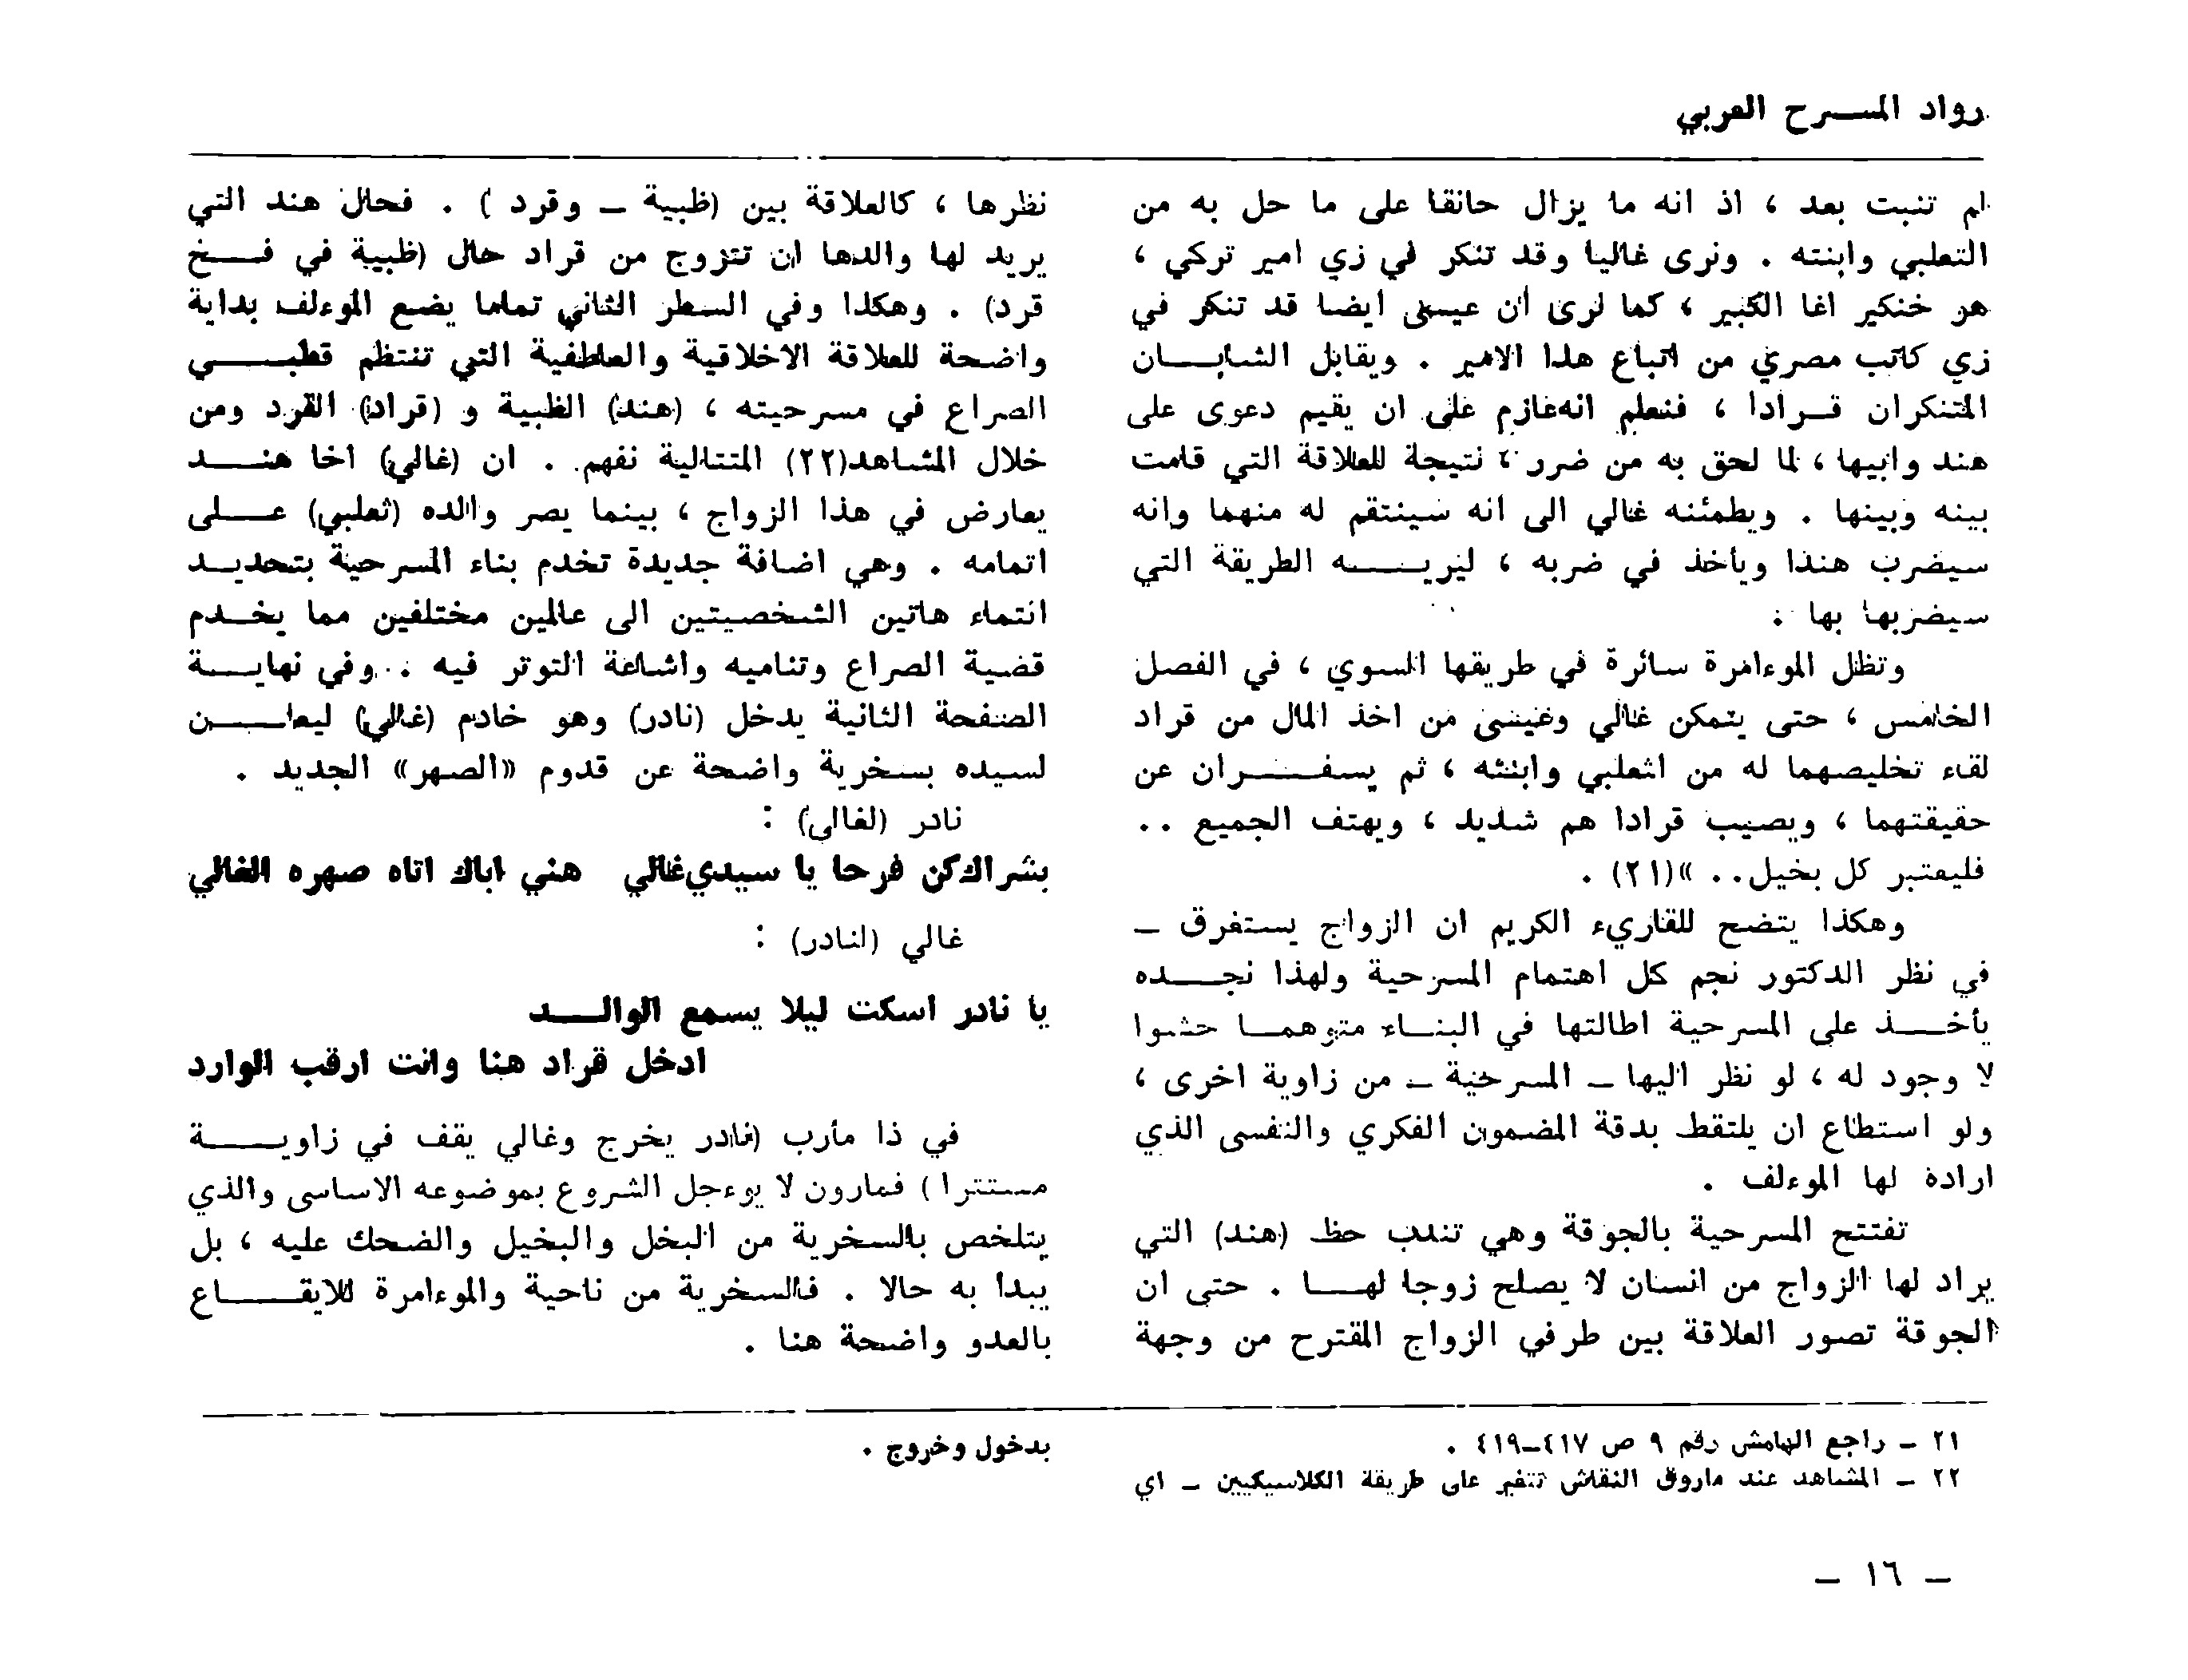 رواد المسرح العربي
لم تنبت بعد ، اذ انه ما يزال حانقا على ما حل به من
الثعلبي وابنته . ونرى غاليا وقد تنكر في زي امير تركي ،
هو خنكير اغا الكبير ، كما نرى ان عيسى ايضا قد تنكر في
زي كاتب مصري من اتباع هذا الامير . ويقابل الشابان
المتنكران قرادا ، فنعلم انه عازم على ان يقيم دعوى على
هند وابيها ، لما لحق به من ضرر ، نتيجة للعلاقة التي قامت
بينه وبينها . ويطمئنه غالي الى انه سينتقم له منهما وانه
سيضرب هندا ويأخذ في ضربه ، ليريه الطريقة التي
سيضربها بها .
وتظل الموءامرة سائرة في طريقها السوي ، في الفصل
الخامس ، حتى يتمكن غالي وعيسى من اخذ المال من قراد
لقاء تخليصهما له من الثعلبي وابنته ، ثم يسفران عن
حقيقتهما ، ويصيب قرادا هم شديد ، ويهتف الجميع ..
فليعتبر كل بخيل.. »(٢١) .
وهكذا يتضح للقاريء الكريم ان الزواج يستغرق –
في نظر الدكتور نجم كل اهتمام المسرحية ولهذا نجده
يأخذ على المسرحية اطالتها في البناء متوهما حشوا
لا وجود له ، لو نظر اليها – المسرحية – من زاوية اخرى ،
ولو استطاع ان يلتقط بدقة المضمون الفكري والنفسي الذي
اراده لها الموءلف .
تفتتح المسرحية بالجوقة وهي تندب حظ (هند) التي
يراد لها الزواج من انسان لا يصلح زوجا لها . حتى ان
الجوقة تصور العلاقة بين طرفي الزواج المقترح من وجهة
نظرها ، كالعلاقة بين (ظبية – وقرد ) . فحال هند التي
يريد لها والدها ان تتزوج من قراد حال (ظبية في فخ
قرد) . وهكذا وفي السطر الثاني تماما يضع الموءلف بداية
واضحة للعلاقة الاخلاقية والعاطفية التي تنتظم قطبي
الصراع في مسرحيته ، (هند) الظبية و (قراد) القرد ومن
خلال المشاهد(٢٢) المتتالية نفهم . ان (غالي) اخا هند
يعارض في هذا الزواج ، بينما يصر والده (ثعلبي) على
اتمامه . وهي اضافة جديدة تخدم بناء المسرحية بتحديد
انتماء هاتين الشخصيتين الى عالمين مختلفين مما يخدم
قضية الصراع وتناميه واشاعة التوتر فيه . . وفي نهاية
الصفحة الثانية يدخل (نادر) وهو خادم (غالي) ليعلن
لسيده بسخرية واضحة عن قدوم «الصهر» الجديد .
نادر (لغالي) :
بشراك كن فرحا يا سيدي غالي    هني اباك اتاه صهره الغالي
غالي (لنادر) :
يا نادر اسكت ليلا يسمع الوالد
ادخل قراد هنا وانت ارقب الوارد
في ذا مأرب (نادر يخرج وغالي يقف في زاوية
مستترا ) فمارون لا يوءجل الشروع بموضوعه الاساسي والذي
يتلخص بالسخرية من البخل والبخيل والضحك عليه ، بل
يبدأ به حالا . فالسخرية من ناحية والموءامرة للايقاع
بالعدو واضحة هنا .
٢١ – راجع الهامش رقم ٩ ص ٤١٧–٤١٩ .
٢٢ – المشاهد عند ماروق النقاش تتغير على طريقة الكلاسيكيين – اي
بدخول وخروج .
– ١٦ –